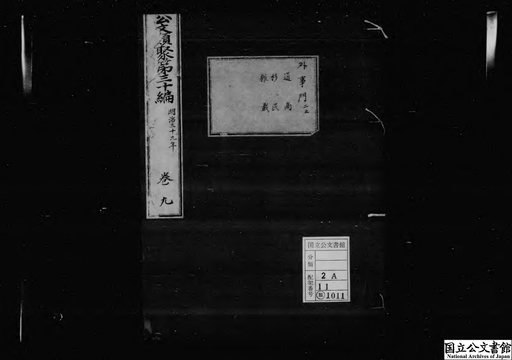 公文類聚第三十編
明治三十九年
巻九
外事門二
通商
移民
雑載
国立公文書館
分類
配架番号
2 A
11
類 1011
国立公文書館
National Archives of Japan